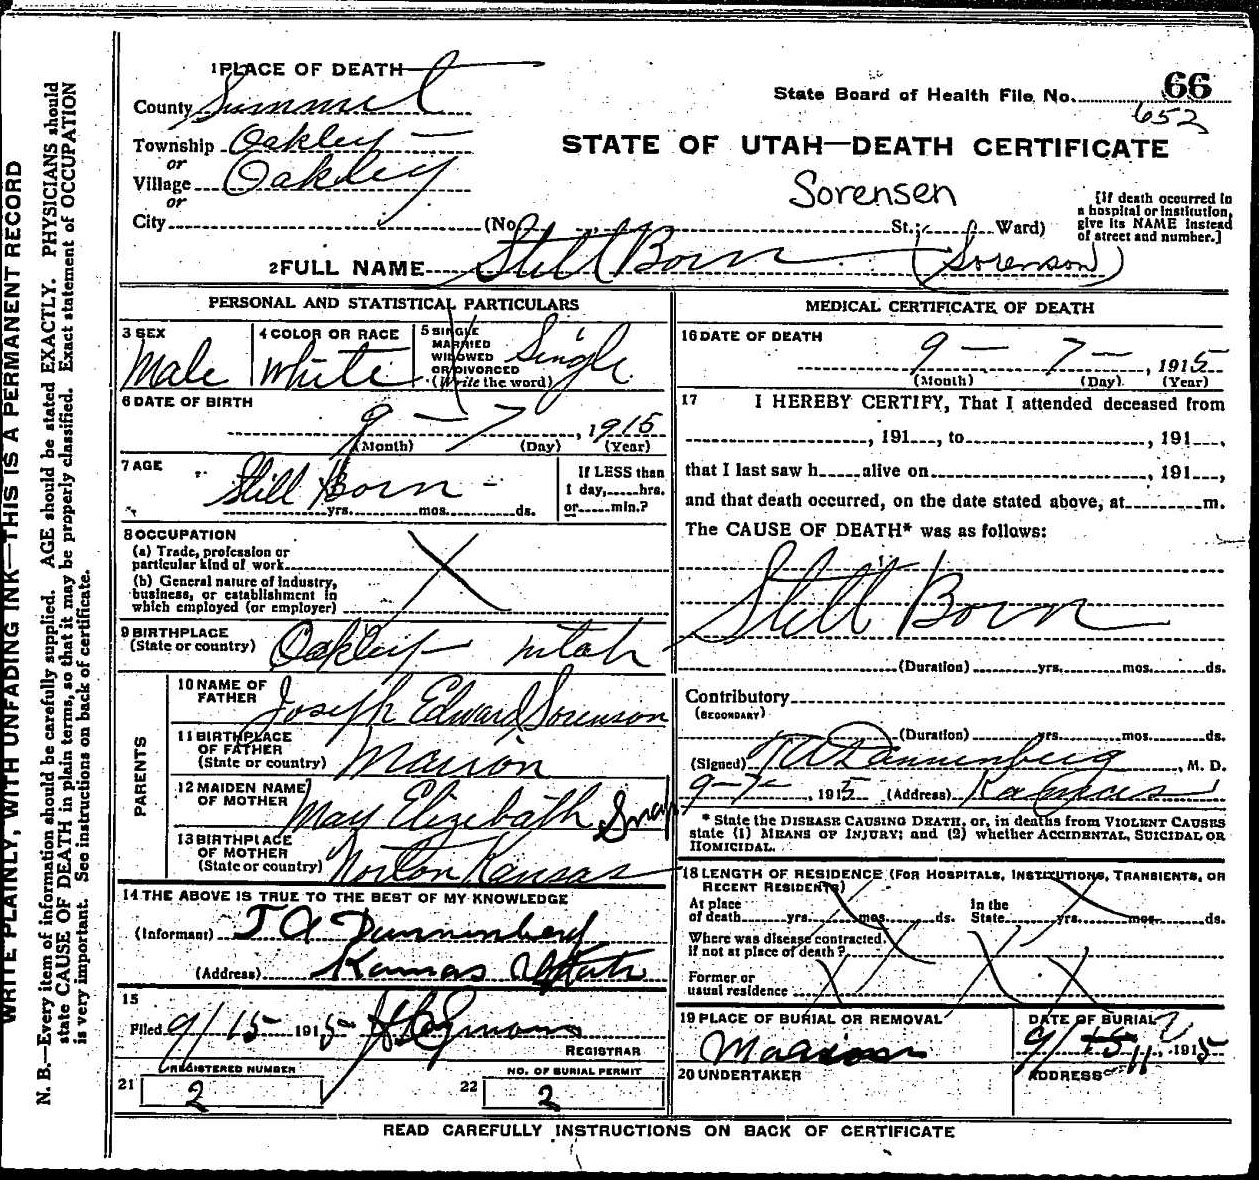 WRITE PLAINLY, WITH UNFADING INK—THIS IS A PERMANENT RECORD
N. B.—Every item of information should be carefully supplied. AGE should be stated EXACTLY. PHYSICIANS should
state CAUSE OF DEATH in plain terms, so that it may be properly classified. Exact statement of OCCUPATION
is very important. See instructions on back of certificate.
1 PLACE OF DEATH
County Summit
State Board of Health File No. 66
652
Township Oakley
or
Village Oakley
or
STATE OF UTAH—DEATH CERTIFICATE
Sorensen
City (No. St.; Ward)
[If death occurred in
a hospital or institution,
give its NAME instead
of street and number.]
2 FULL NAME Still Born (Sorenson)
PERSONAL AND STATISTICAL PARTICULARS
3 SEX
Male
4 COLOR OR RACE
White
5 SINGLE
MARRIED
WIDOWED
OR DIVORCED
(Write the word)
Single
6 DATE OF BIRTH
9 — 7, 1915
(Month) (Day) (Year)
7 AGE
Still Born -
yrs. mos. ds.
If LESS than
1 day, hrs.
or min.?
8 OCCUPATION
(a) Trade, profession or
particular kind of work
(b) General nature of industry,
business, or establishment in
which employed (or employer)
9 BIRTHPLACE
(State or country) Oakley Utah
PARENTS
10 NAME OF
FATHER Joseph Edward Sorenson
11 BIRTHPLACE
OF FATHER
(State or country) Marion
12 MAIDEN NAME
OF MOTHER May Elizebath
13 BIRTHPLACE
OF MOTHER
(State or country) Norton Kansas
14 THE ABOVE IS TRUE TO THE BEST OF MY KNOWLEDGE
(Informant) J A Dannenberg
(Address) Kamas Utah
15
Filed 9/15 1915
REGISTRAR
REGISTERED NUMBER
21 2
NO. OF BURIAL PERMIT
22 2
MEDICAL CERTIFICATE OF DEATH
16 DATE OF DEATH
9 — 7 —, 1915
(Month) (Day) (Year)
17 I HEREBY CERTIFY, That I attended deceased from
, 191 , to , 191 ,
that I last saw h alive on , 191 ,
and that death occurred, on the date stated above, at m.
The CAUSE OF DEATH* was as follows:
Still Born
(Duration) yrs. mos. ds.
Contributory
(SECONDARY)
(Duration) yrs. mos. ds.
(Signed) Dannenberg, M. D.
9-7-, 1915 (Address) Kamas
* State the DISEASE CAUSING DEATH, or, in deaths from VIOLENT CAUSES
state (1) MEANS OF INJURY; and (2) whether ACCIDENTAL, SUICIDAL OR
HOMICIDAL.
18 LENGTH OF RESIDENCE (FOR HOSPITALS, INSTITUTIONS, TRANSIENTS, OR
RECENT RESIDENTS)
At place
of death yrs. mos. ds.
In the
State yrs. mos. ds.
Where was disease contracted,
if not at place of death?
Former or
usual residence
19 PLACE OF BURIAL OR REMOVAL
Marion
DATE OF BURIAL
9/ 11, 1915
20 UNDERTAKER
ADDRESS
READ CAREFULLY INSTRUCTIONS ON BACK OF CERTIFICATE